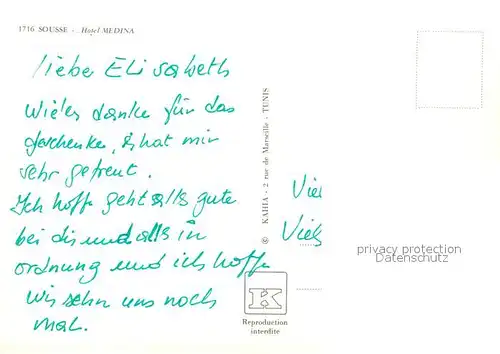 1716 SOUSSE - Hotel MEDINA
lieber Elisabeth
Wieles danke für das
geschenke, es hat mir
sehr gefreut.
Ich hoffe geht alls gute
bei dis und alls in
ordnung und ich hoffe
wis sehn uns noch
mal.
© KAHIA - 2 rue de Marseille - TUNIS
Viel
Viels
privacy protection
Datenschutz
K
Reproduction
interdite